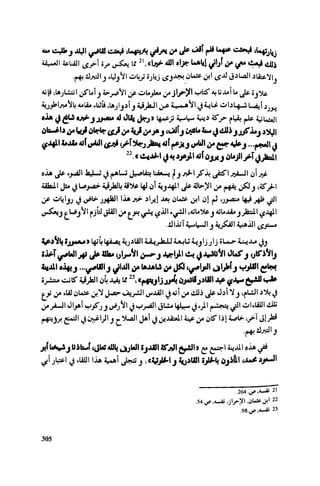 زيارتهما، فبحثت عنهما فلم أقف على من يعرفني بتربتهما، فبعثت لقاضي البلد و طلبت منه
ذلك فبعث معي من أراني إياهما جزاه الله خيرا»،21 مما يعكس مرة أخرى القناعة العميقة
والاعتقاد الصادق لدى ابن عثمان بجدوى زيارة تربات الأولياء و التبرك بهم.
علاوة على ما أمدنا به كتاب الإحراز من معلومات عن الأضرحة و أماكن انتشارها، فإنه
يورد أيضا شهادات غاية في الأهمية عن الطرقية و أدوارها، فأثناء مقامه بالأمبراطورية
العثمانية علم بقيام حركة دينية سياسية تزعمها «رجل يقال له منصور و خبره شائع في هذه
البلاد ومذكور و ذلك في سنة مائتين و ألف، و هو من قرية من قرى جاجان قريبا من داغستان
في العجم... و عليه جمع من الناس و يزعم أنه ينتظر رجلا آخر، فيرى الناس أنه مقدمة المهدي
المنتظر في آخر الزمان و يرون أنه الموعود به في الحديث».22
غير أن السفير اكتفى بذكر الخبر و لم يسعفنا بتفاصيل تساهم في تسليط الضوء على هذه
الحركة، و لكن يفهم من الإحالة على المهدوية أن لها علاقة بالطرقية خصوصا في مثل المنطقة
التي ظهر فيها منصور، ثم إن ابن عثمان بعد إيراد خبر هذا الظهور خاض في روايات عن
المهدي المنتظر و مقدماته و علاماته، الشيء الذي يشي بنوع من القلق لتأزم الأوضاع ويعكس
مستوى الذهنية الفكرية و السياسية آنذاك.
وفي مدينة حماة زار زاوية تابعة للطريقة القادرية يصفها بأنها «معمورة بالأدعية
والأذكار، و كمال الأناشيد في بث المواجيد و حسن الأسرار، مطلة على نهر العاصي آخذة
بمجامع القلوب و أطراف النواصي، لكل من شاهدها من الداني و القاصي... و بهذه المدينة
عقب للشيخ سيدي عبد القادر قائمون بأمور زاويتهم»،23 مما يفيد بأن الطرقية كانت منتشرة
في بلاد الشام، و لا أدل على ذلك من أنه في القدس الشريف حصل لابن عثمان لقاء من نوع
تلك اللقاءات التي يتجشم المرء في سبيلها مشاق الضرب في الأرض و ركوب أهوال السفر من
قطر إلى آخر، خاصة إذا كان من عينة المعتقدين في أهل الصلاح و الراغبين في التمتع برؤيتهم
و التبرك بهم.
ففي هذه المدينة اجتمع مع «الشيخ البركة القدوة العارف بالله تعالى، أستاذنا و شيخنا أبو
السعود محمد، المأذون بالخلوة القادرية و الخلوتية»، و تتجلى أهمية هذا اللقاء في اعتبار أبي
21 نفسه، ص. 264.
22 ابن عثمان، الإحراز، نفسه، ص. 54.
23 نفسه، ص. 98.
305